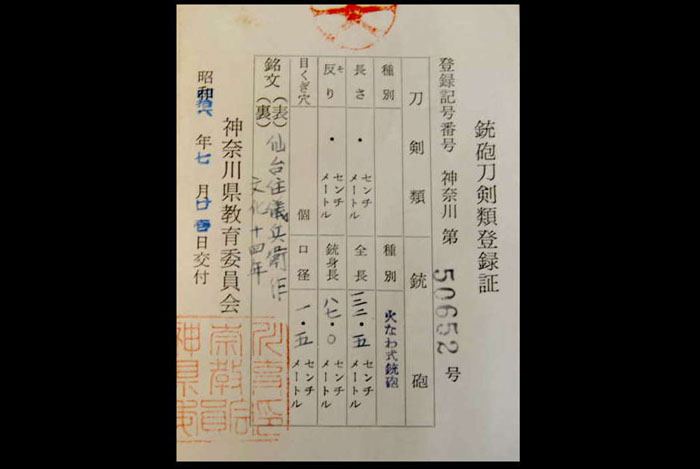 銃砲刀剣類登録証
登録記号番号 神奈川 第 50652 号
刀剣類 銃砲
種別 種別 火なわ式銃砲
長さ ・ センチメートル 全長 一三二・五 センチメートル
反り そ ・ センチメートル 銃身長 八七・〇 センチメートル
目くぎ穴 個 口径 一・五 センチメートル
銘文 (表) 仙台住儀兵衛作
(裏) 文化十四年
神奈川県教育委員会
昭和 年 七 月 日交付